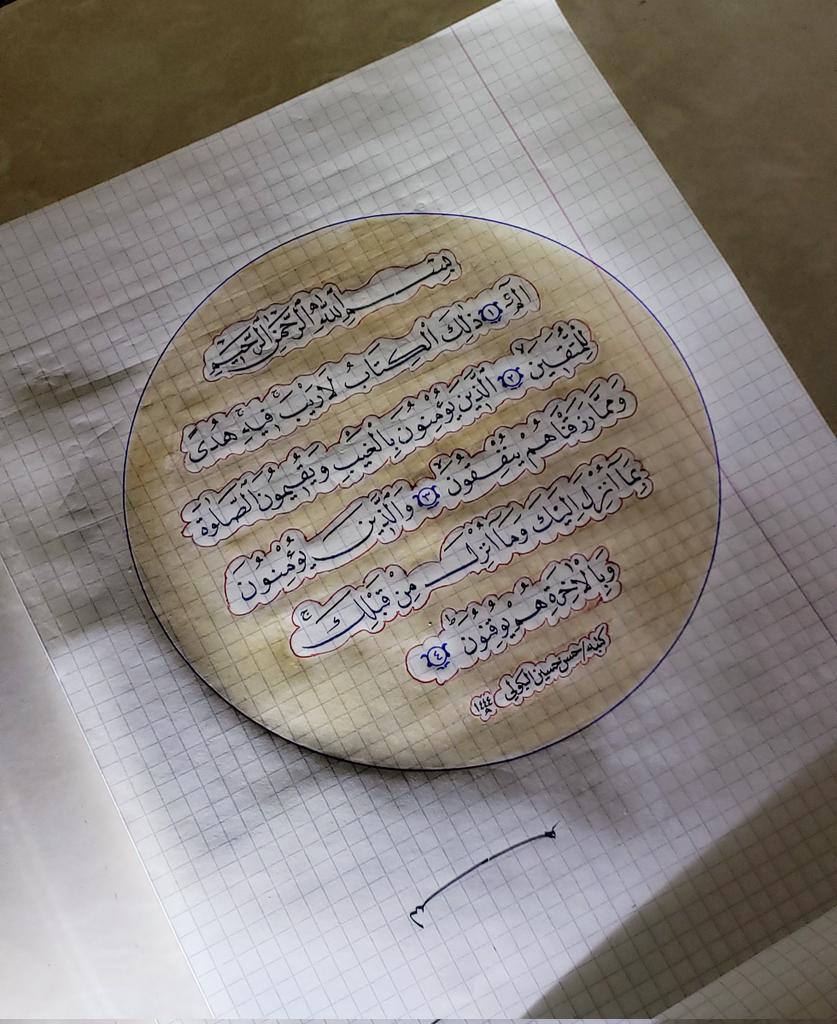 بِسْمِ ٱللَّهِ ٱلرَّحْمَٰنِ ٱلرَّحِيمِ
الٓمٓ ١ ذَٰلِكَ ٱلْكِتَابُ لَا رَيْبَ ۛ فِيهِ ۛ هُدًى
لِلْمُتَّقِينَ ٢ الَّذِينَ يُؤْمِنُونَ بِالْغَيْبِ وَيُقِيمُونَ ٱلصَّلٰوةَ
وَمِمَّا رَزَقْنَاهُمْ يُنْفِقُونَ ٣ وَالَّذِينَ يُؤْمِنُونَ
بِمَا أُنْزِلَ إِلَيْكَ وَمَا أُنْزِلَ مِنْ قَبْلِكَ ۚ
وَبِالْآخِرَةِ هُمْ يُوقِنُونَ ٤
كتبه / حسن حسين ١٤٤٤ هـ